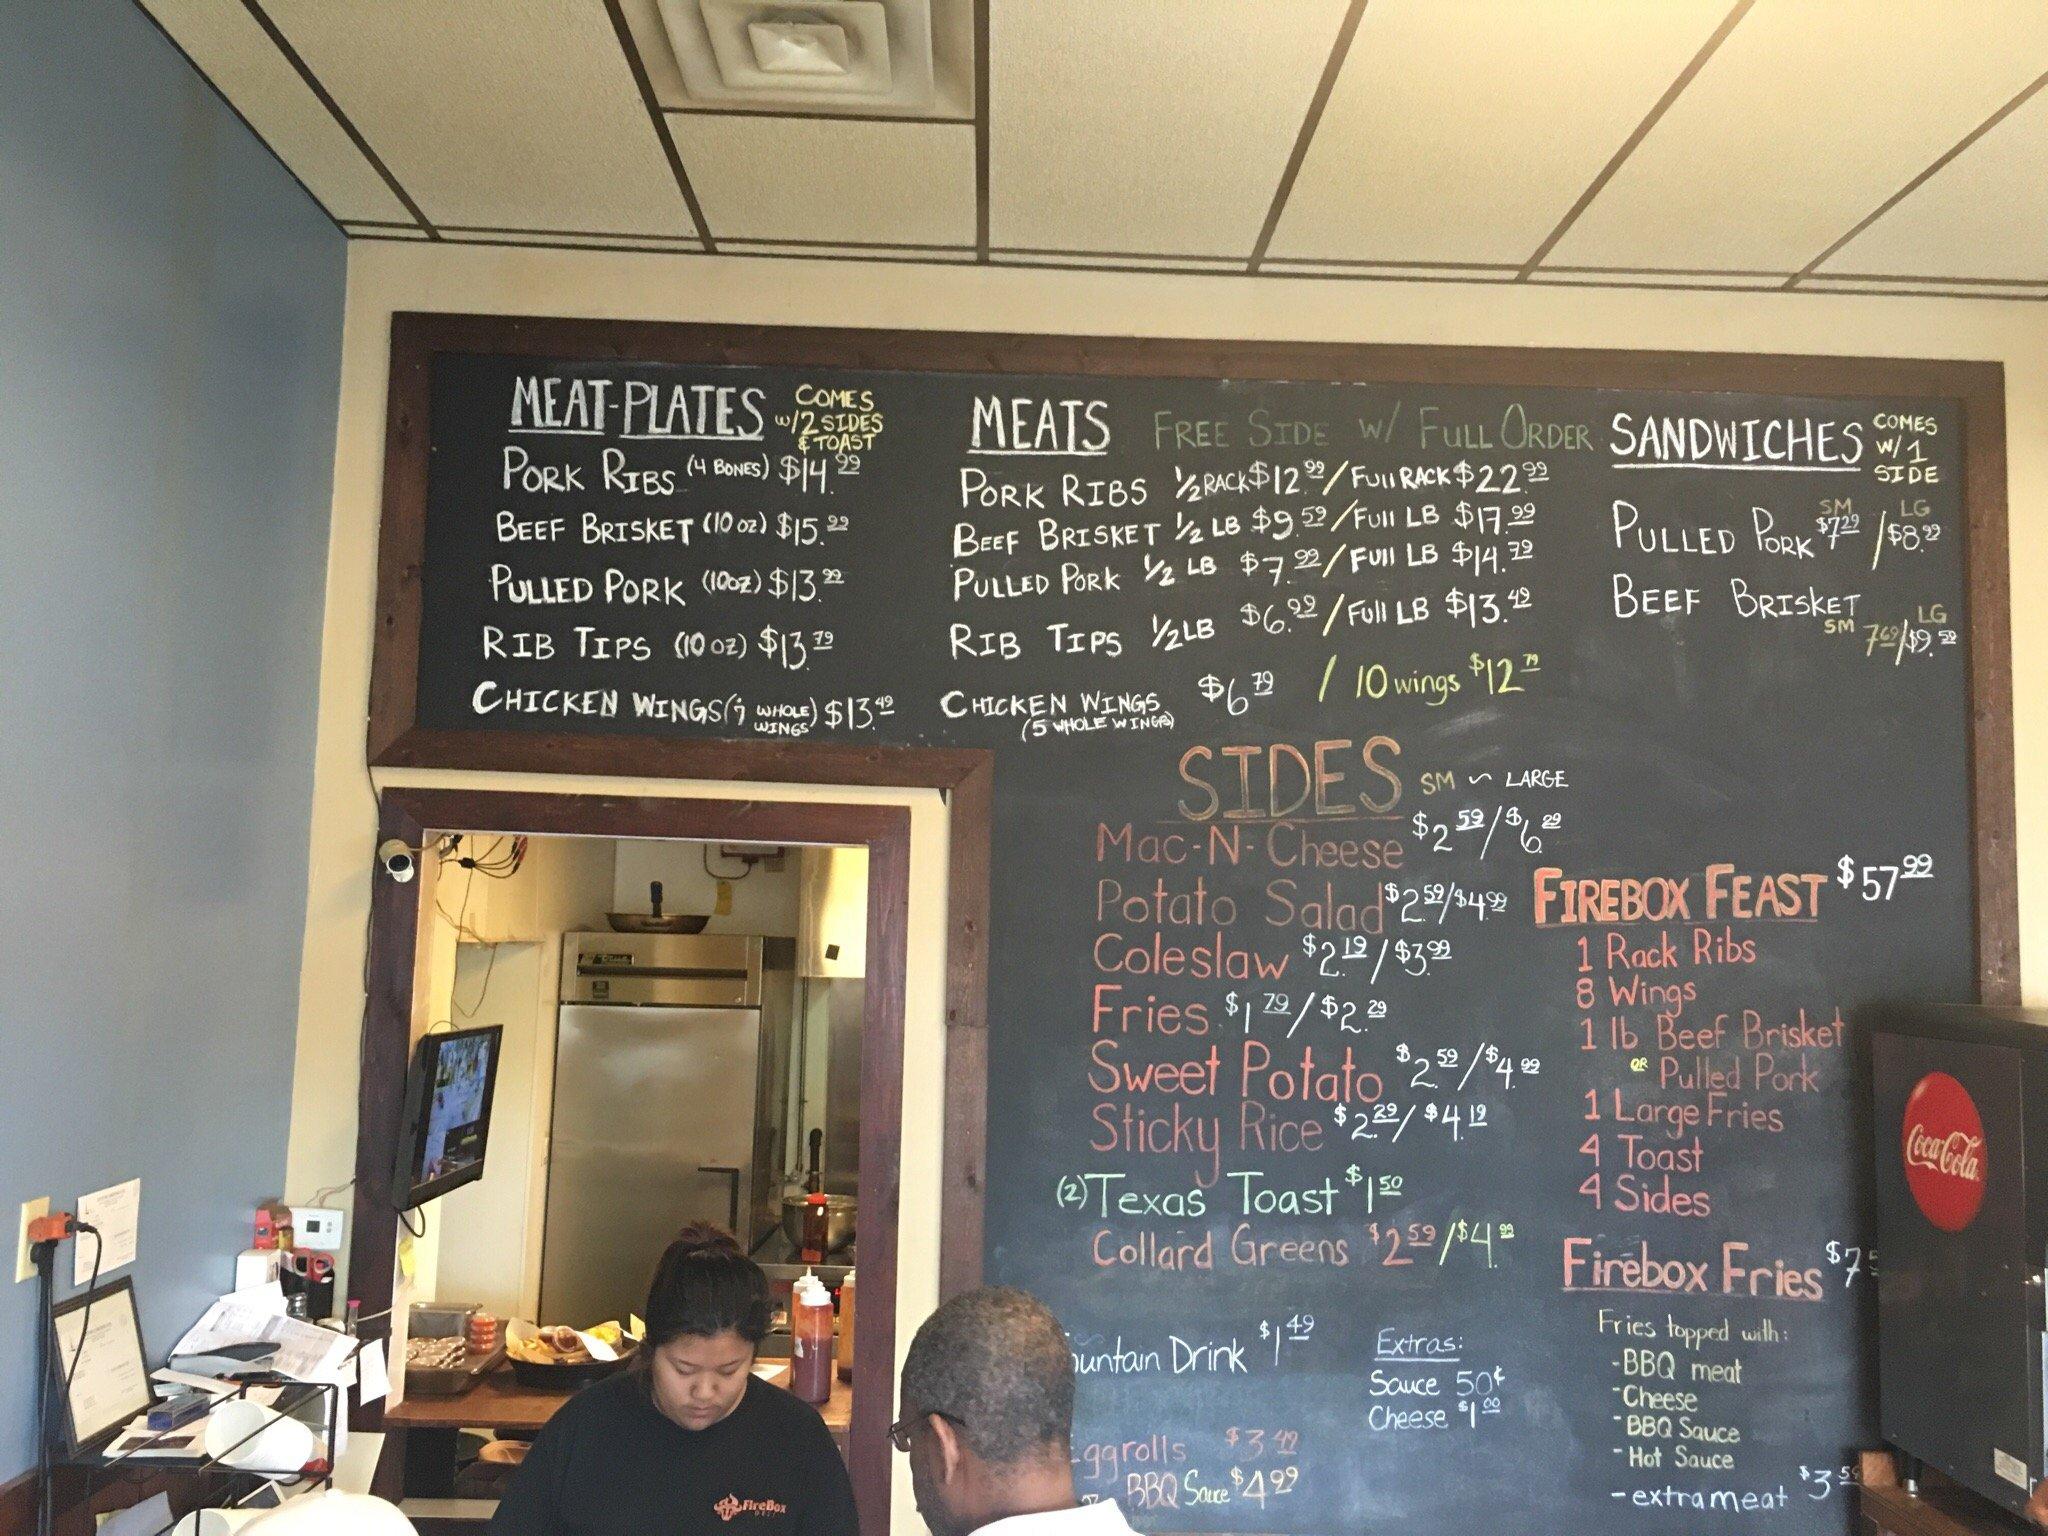 MEAT-PLATES COMES
w/2 SIDES
& TOAST
PORK RIBS (4 BONES) $14.99
BEEF BRISKET (10 oz) $15.99
PULLED PORK (10oz) $13.99
RIB TIPS (10 oz) $13.79
CHICKEN WINGS (7 WHOLE WINGS) $13.49
MEATS FREE SIDE W/ FULL ORDER
PORK RIBS 1/2 RACK $12.99 / FULL RACK $22.99
BEEF BRISKET 1/2 LB $9.59 / FULL LB $17.99
PULLED PORK 1/2 LB $7.99 / FULL LB $14.79
RIB TIPS 1/2 LB $6.99 / FULL LB $13.49
CHICKEN WINGS $6.79 / 10 wings $12.79
(5 WHOLE WINGS)
SANDWICHES COMES
W/ 1
SIDE
SM LG
PULLED PORK $7.29 / $8.99
BEEF BRISKET
SM 7.69 / LG $9.59
SIDES SM ~ LARGE
Mac-N-Cheese $2.59 / $6.29
Potato Salad $2.59 / $4.99
Coleslaw $2.19 / $3.99
Fries $1.79 / $2.29
Sweet Potato $2.59 / $4.99
Sticky Rice $2.29 / $4.19
(2) Texas Toast $1.50
Collard Greens $2.59 / $4.99
FIREBOX FEAST $57.99
1 Rack Ribs
8 Wings
1 lb Beef Brisket
OR Pulled Pork
1 Large Fries
4 Toast
4 Sides
Firebox Fries $7.5
Fries topped with:
-BBQ meat
-Cheese
-BBQ Sauce
-Hot Sauce
-extra meat $3.59
untain Drink $1.49
Extras:
Sauce 50¢
Cheese $1.00
ggrolls $3.49
BBQ Sauce $4.99
Coca-Cola
FireBox